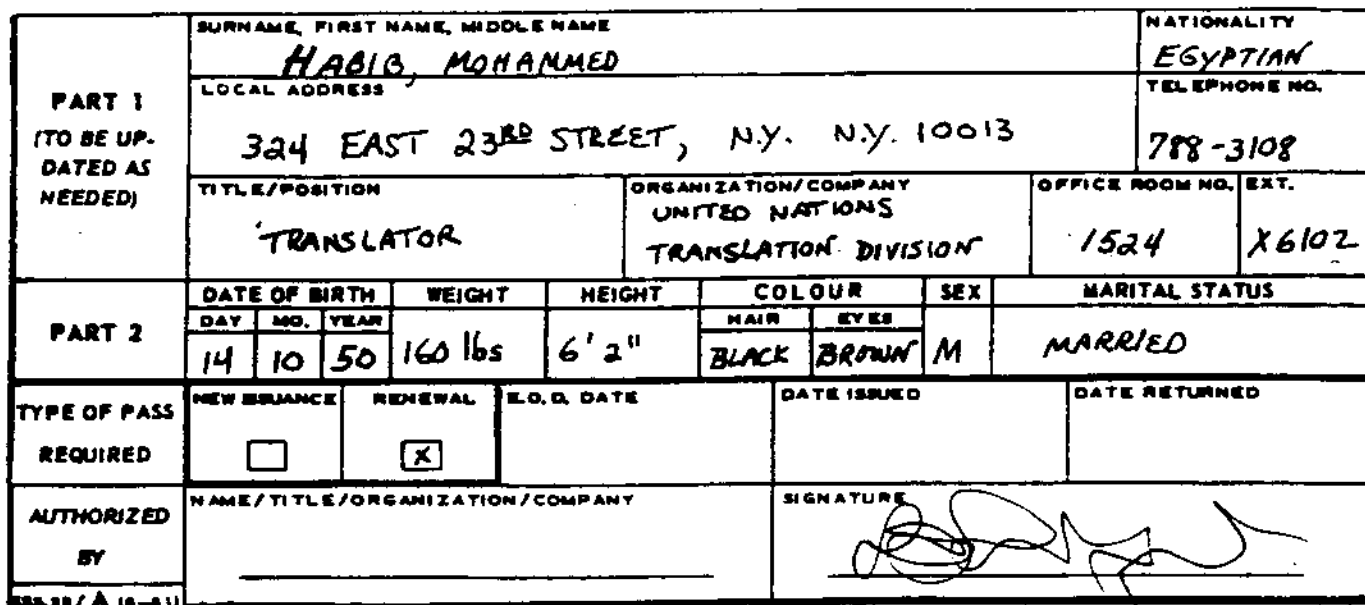 SURNAME, FIRST NAME, MIDDLE NAME
HABIB, MOHAMMED
NATIONALITY
EGYPTIAN
PART 1
(TO BE UP-
DATED AS
NEEDED)
LOCAL ADDRESS
324 EAST 23RD STREET, N.Y. N.Y. 10013
TELEPHONE NO.
788-3108
TITLE/POSITION
TRANSLATOR
ORGANIZATION/COMPANY
UNITED NATIONS
TRANSLATION DIVISION
OFFICE ROOM NO.
1524
EXT.
X6102
PART 2
DATE OF BIRTH
DAY MO. YEAR
14 10 50
WEIGHT
160 lbs
HEIGHT
6' 2"
COLOUR
HAIR EYES
BLACK BROWN
SEX
M
MARITAL STATUS
MARRIED
TYPE OF PASS
REQUIRED
NEW ISSUANCE
RENEWAL
X
E.O.D. DATE
DATE ISSUED
DATE RETURNED
AUTHORIZED
BY
NAME/TITLE/ORGANIZATION/COMPANY
SIGNATURE